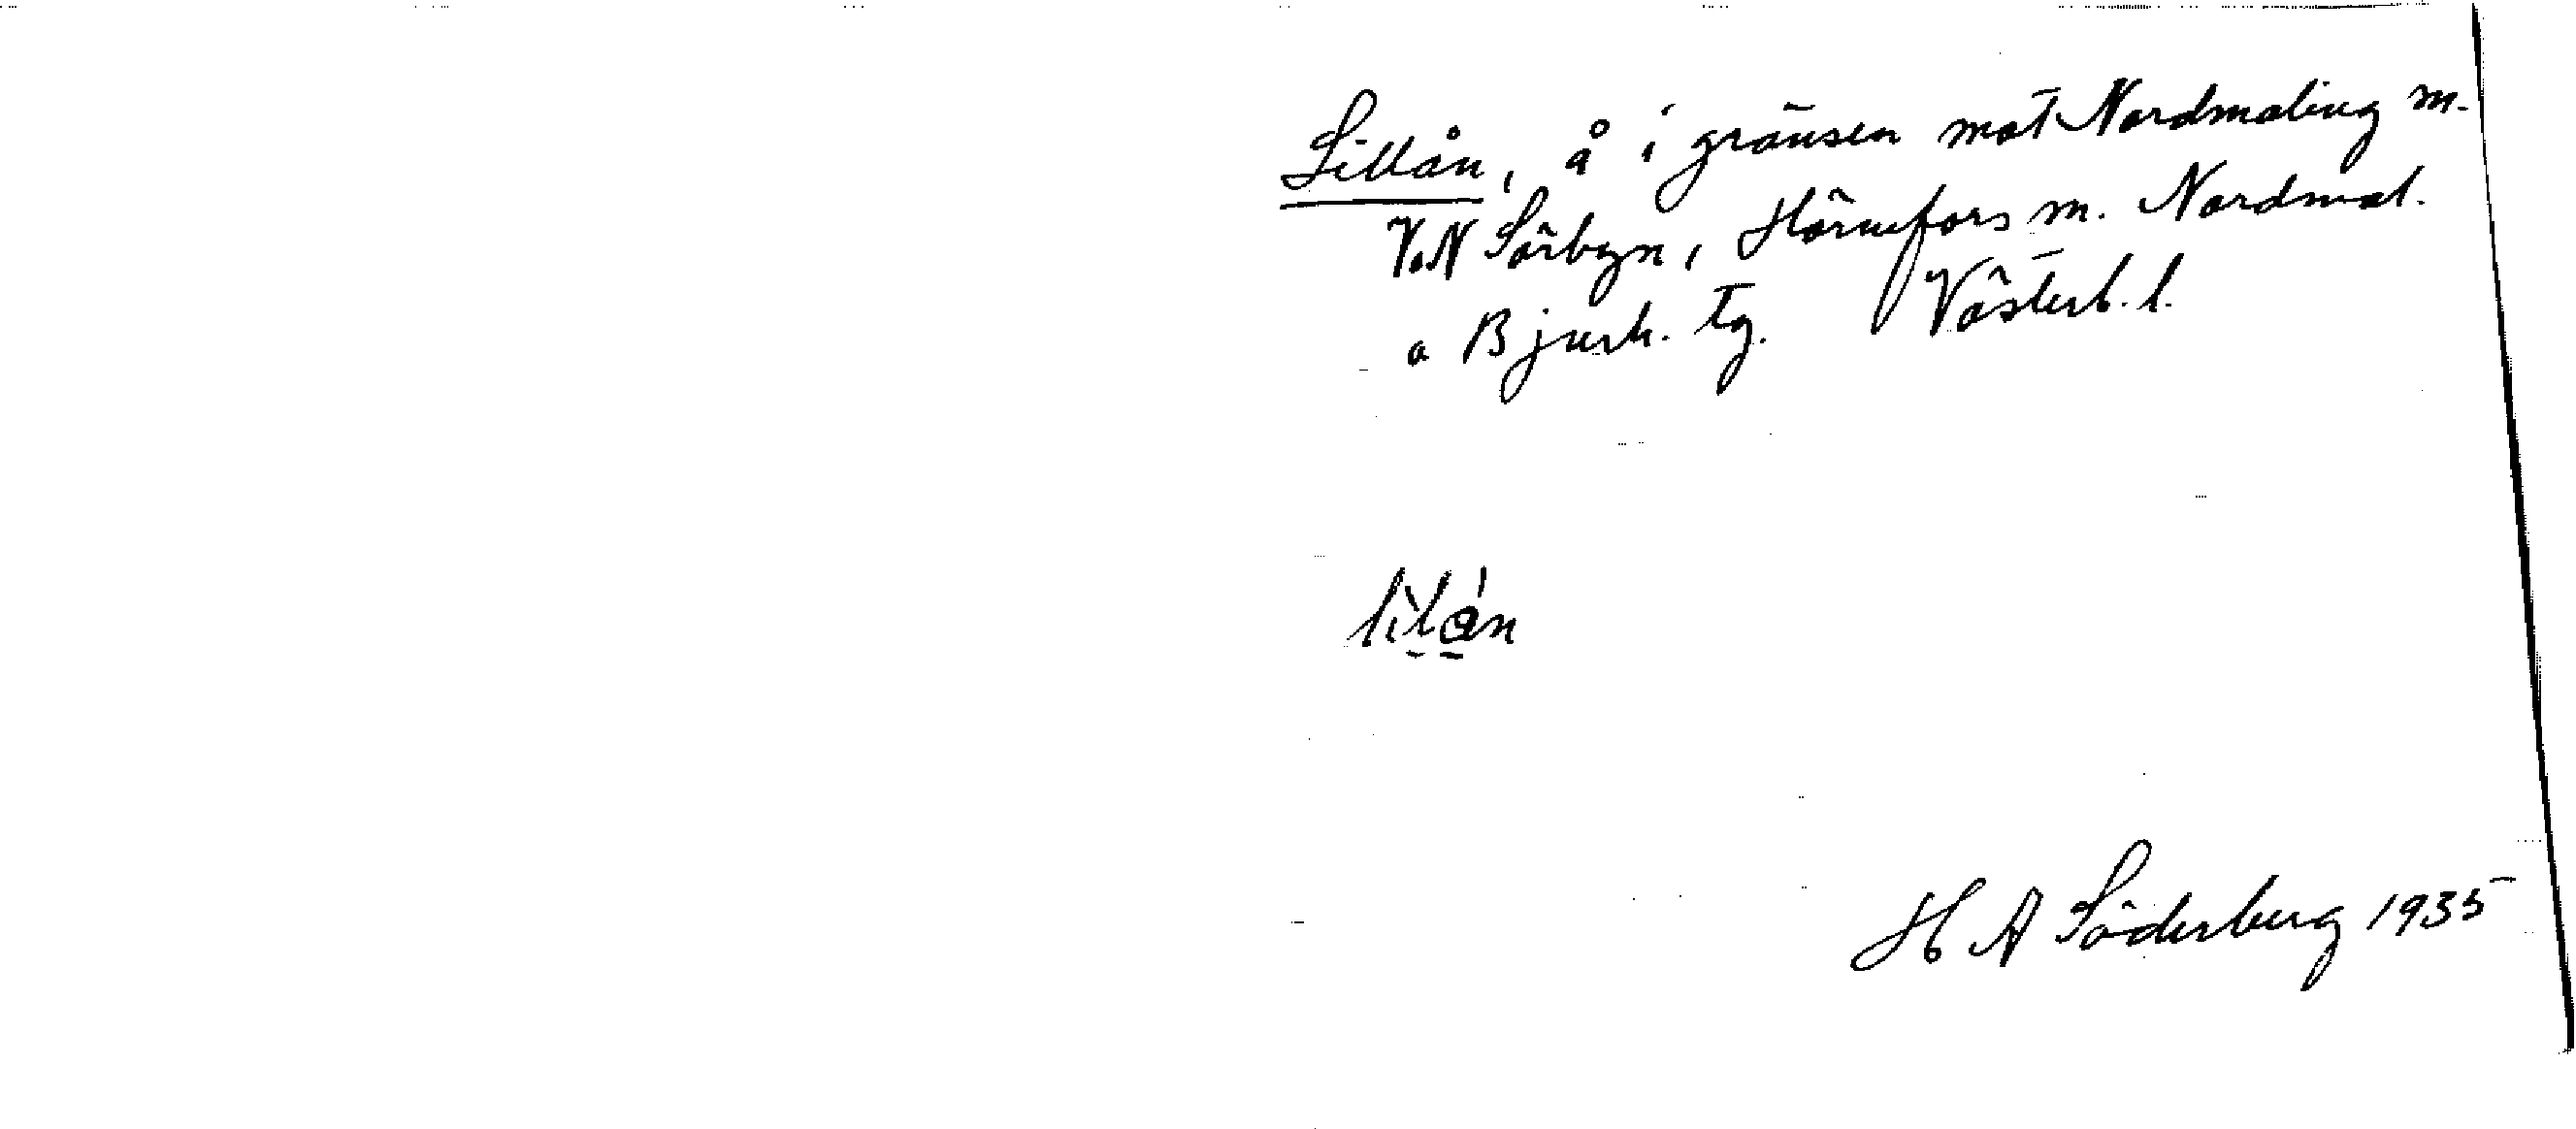 Lillån, å i gränsen mot Nordmaling m.
V.N Sörbyn, Hörnefors m. Nordmal.
o Bjurh. tg. Västerb. l.
lilån
H A Söderberg 1935